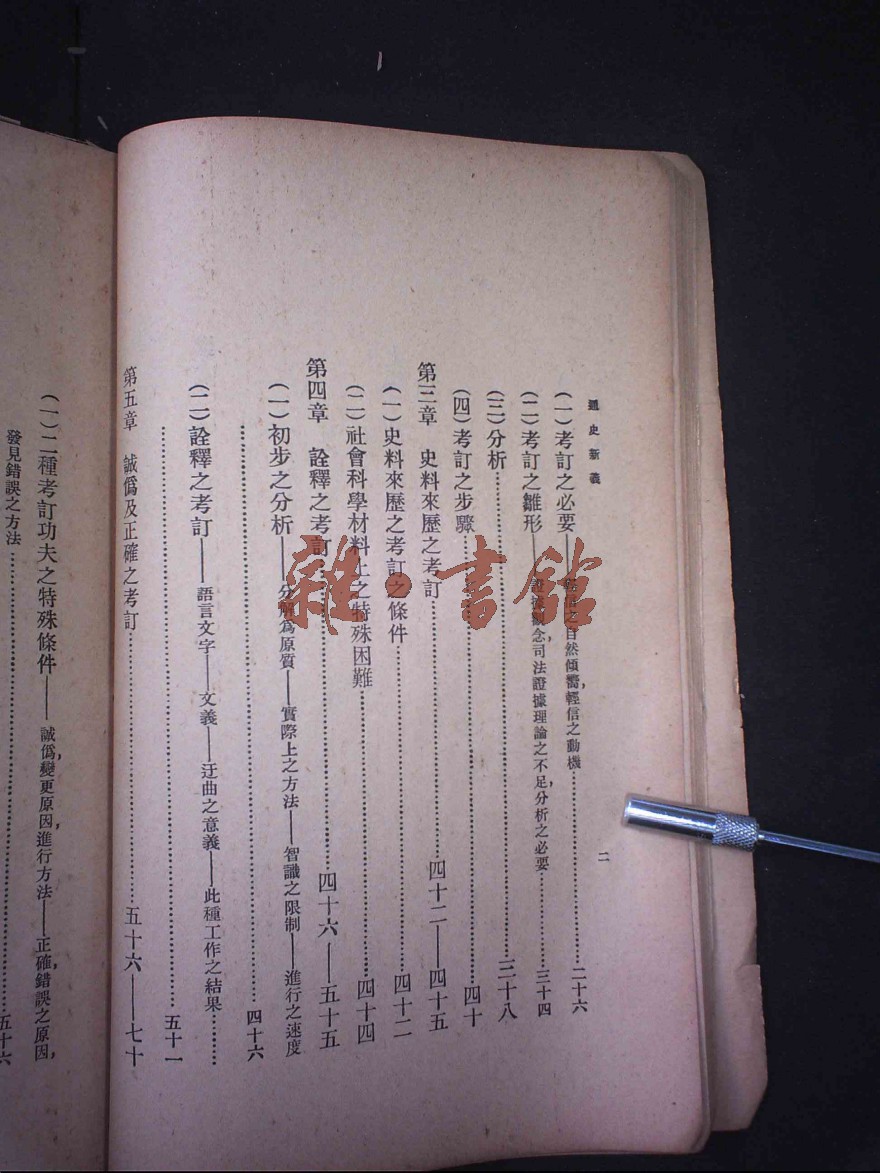 通史新義
二
(一)考訂之必要——輕信之自然傾嚮,輕信之動機……二十六
(二)考訂之雛形——證據觀念,司法證據理論之不足,分析之必要……三十四
(三)分析……三十八
(四)考訂之步驟……四十
第三章 史料來歷之考訂……四十二——四十五
(一)史料來歷之考訂之條件……四十二
(二)社會科學材料上之特殊困難……四十四
第四章 詮釋之考訂……四十六——五十五
(一)初步之分析——分解為原質——實際上之方法——智識之限制——進行之速度
……四十六
(二)詮釋之考訂——語言文字——文義——迂曲之意義——此種工作之結果……
……五十一
第五章 誠僞及正確之考訂……五十六——七十
(一)二種考訂功夫之特殊條件——誠僞,變更原因,進行方法——正確,錯誤之原因,
發見錯誤之方法……五十六
雜·書館